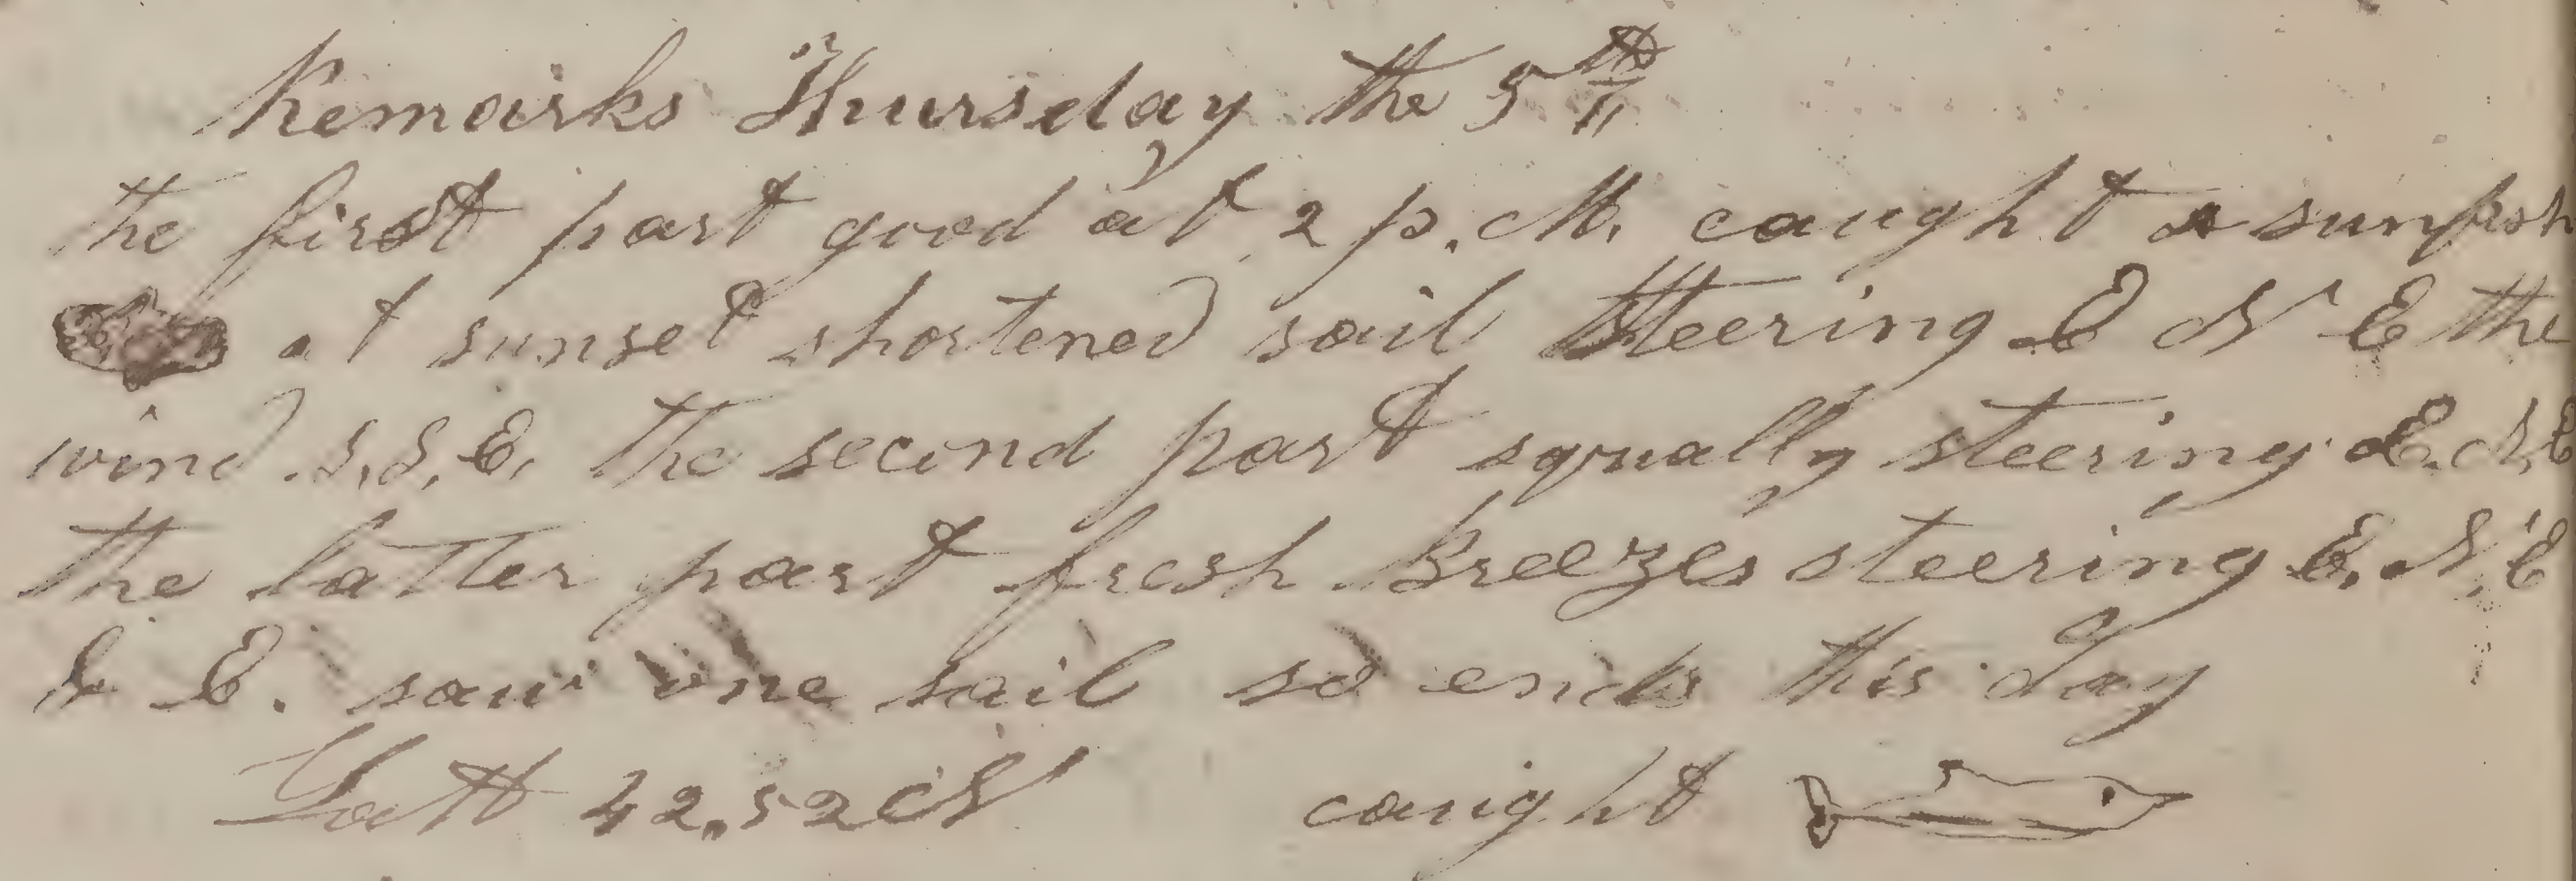 Remarks Thursday the 5th
the first part good at 2 p. M. caught a sunfish
at sunset shortened sail steering E N E the
wind S, S, E, the second part squally steering E. N, E
the latter part fresh Breezes steering E, N, E
& E. saw one sail so ends this day
Latt 42,52 N caught